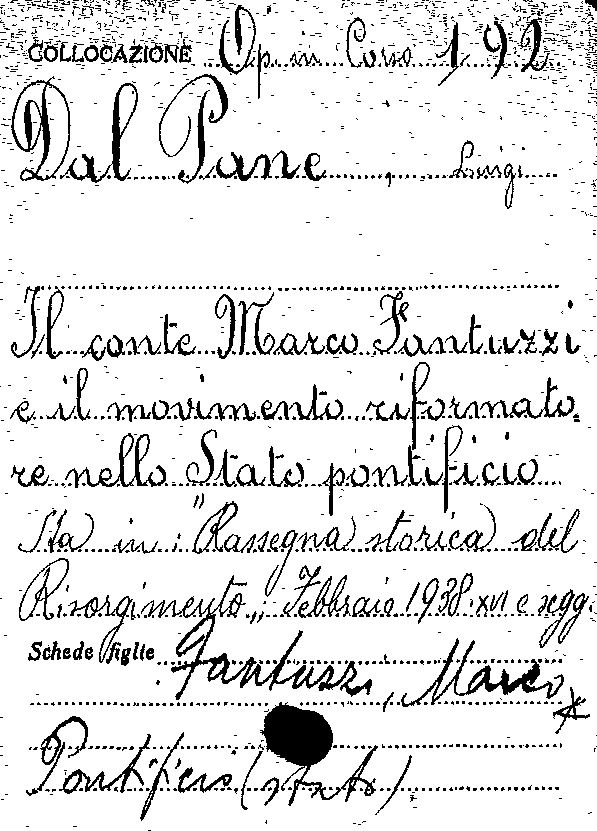 COLLOCAZIONE Op. in Corso 192
Dal Pane, Luigi
Il conte Marco Fantuzzi
e il movimento riformato=
re nello Stato pontificio
Sta in: "Rassegna storica del
Risorgimento„ Febbraio 1938.XVI e segg.
Schede figlie Fantuzzi, Marco
Pontificio (stato)